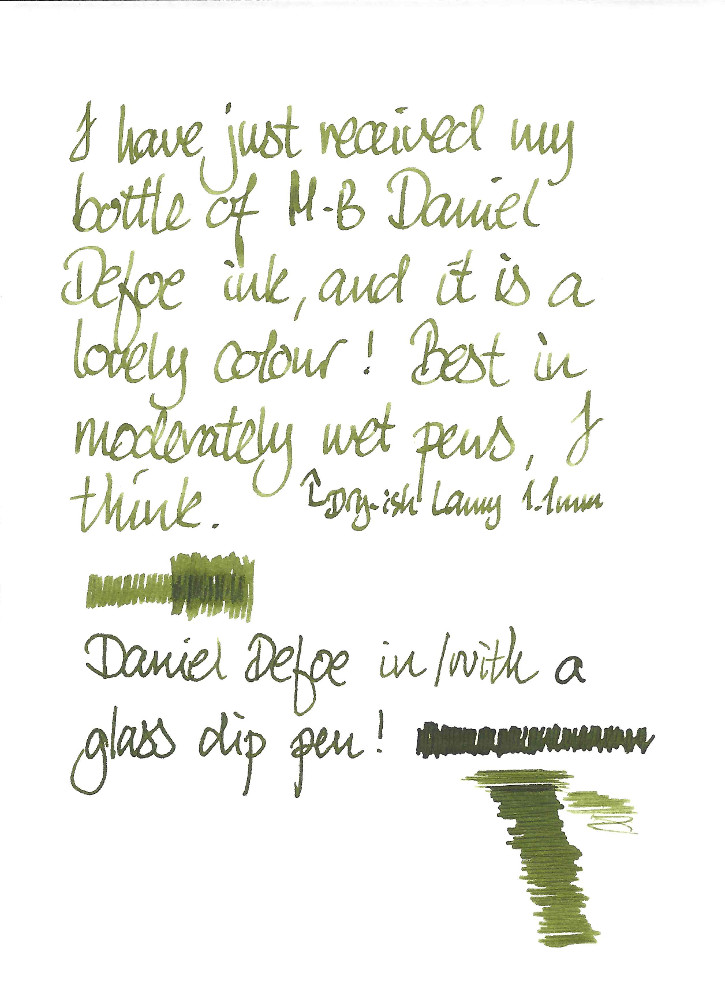 I have just received my
bottle of M-B Daniel
Defoe ink, and it is a
lovely colour! Best in
moderately wet pens, I
think. ↑Dry-ish Lamy 1.1mm
Daniel Defoe in/with a
glass dip pen!